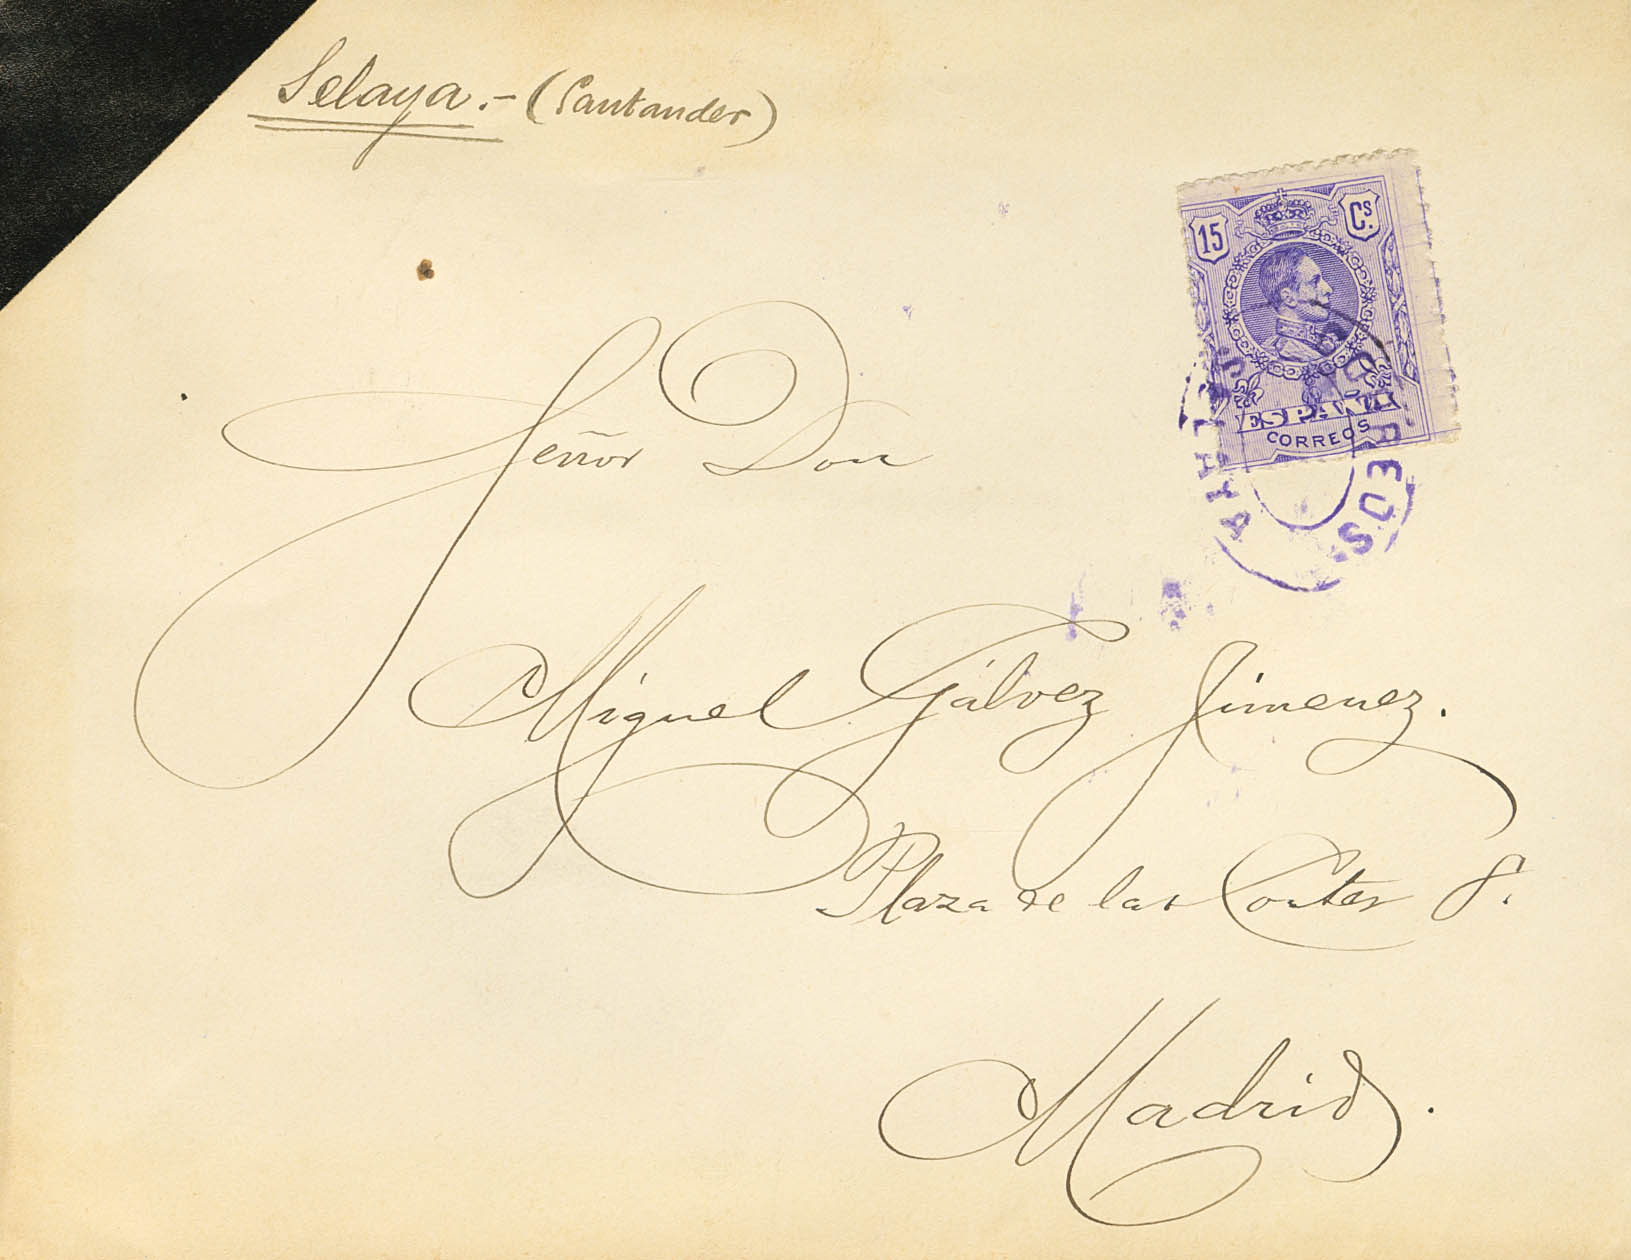 Selaya.- (Santander)
15 Cs.
ESPAÑA
CORREOS
CORREOS
SELAYA
Señor Don
Miguel Gálvez Jimenez.
Plaza de las Cortes 8.
Madrid.